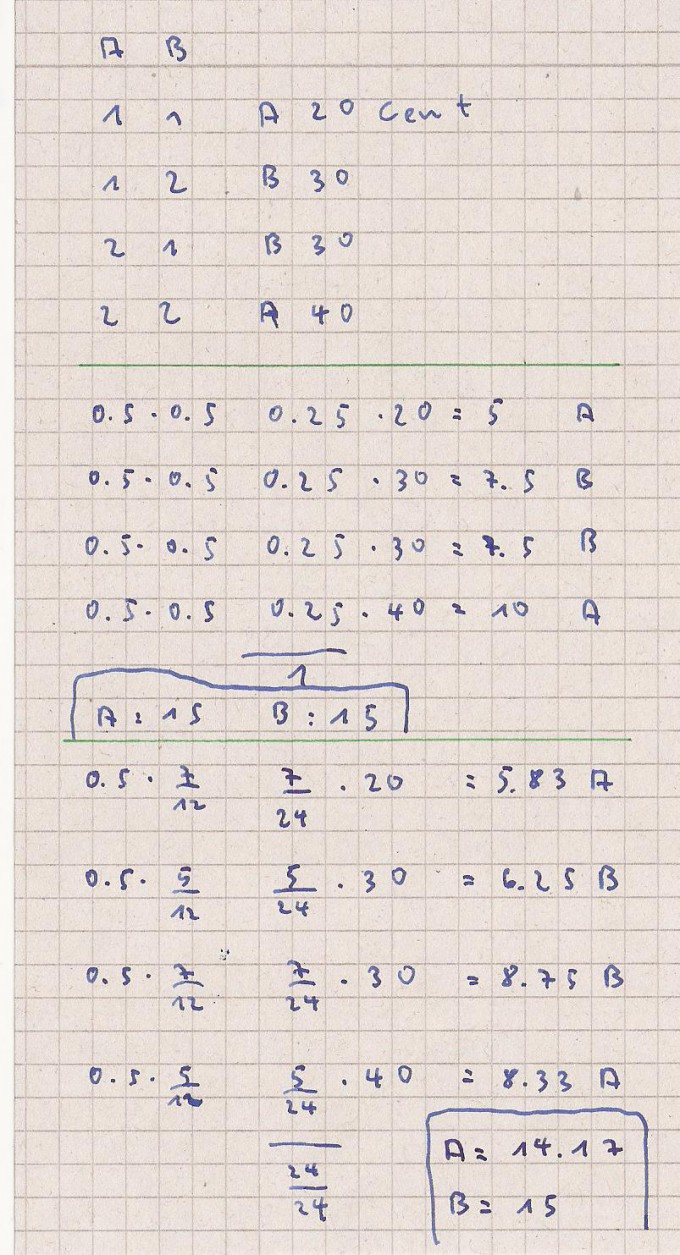 A B
1 1 A 20 Cent
1 2 B 30
2 1 B 30
2 2 A 40
0.5 · 0.5 0.25 · 20 = 5 A
0.5 · 0.5 0.25 · 30 = 7.5 B
0.5 · 0.5 0.25 · 30 = 7.5 B
0.5 · 0.5 0.25 · 40 = 10 A
1
A = 15 B : 15
0.5 · 7/12 7/24 · 20 = 5.83 A
0.5 · 5/12 5/24 · 30 = 6.25 B
0.5 · 7/12 7/24 · 30 = 8.75 B
0.5 · 5/12 5/24 · 40 = 8.33 A
24/24
A = 14.17
B = 15